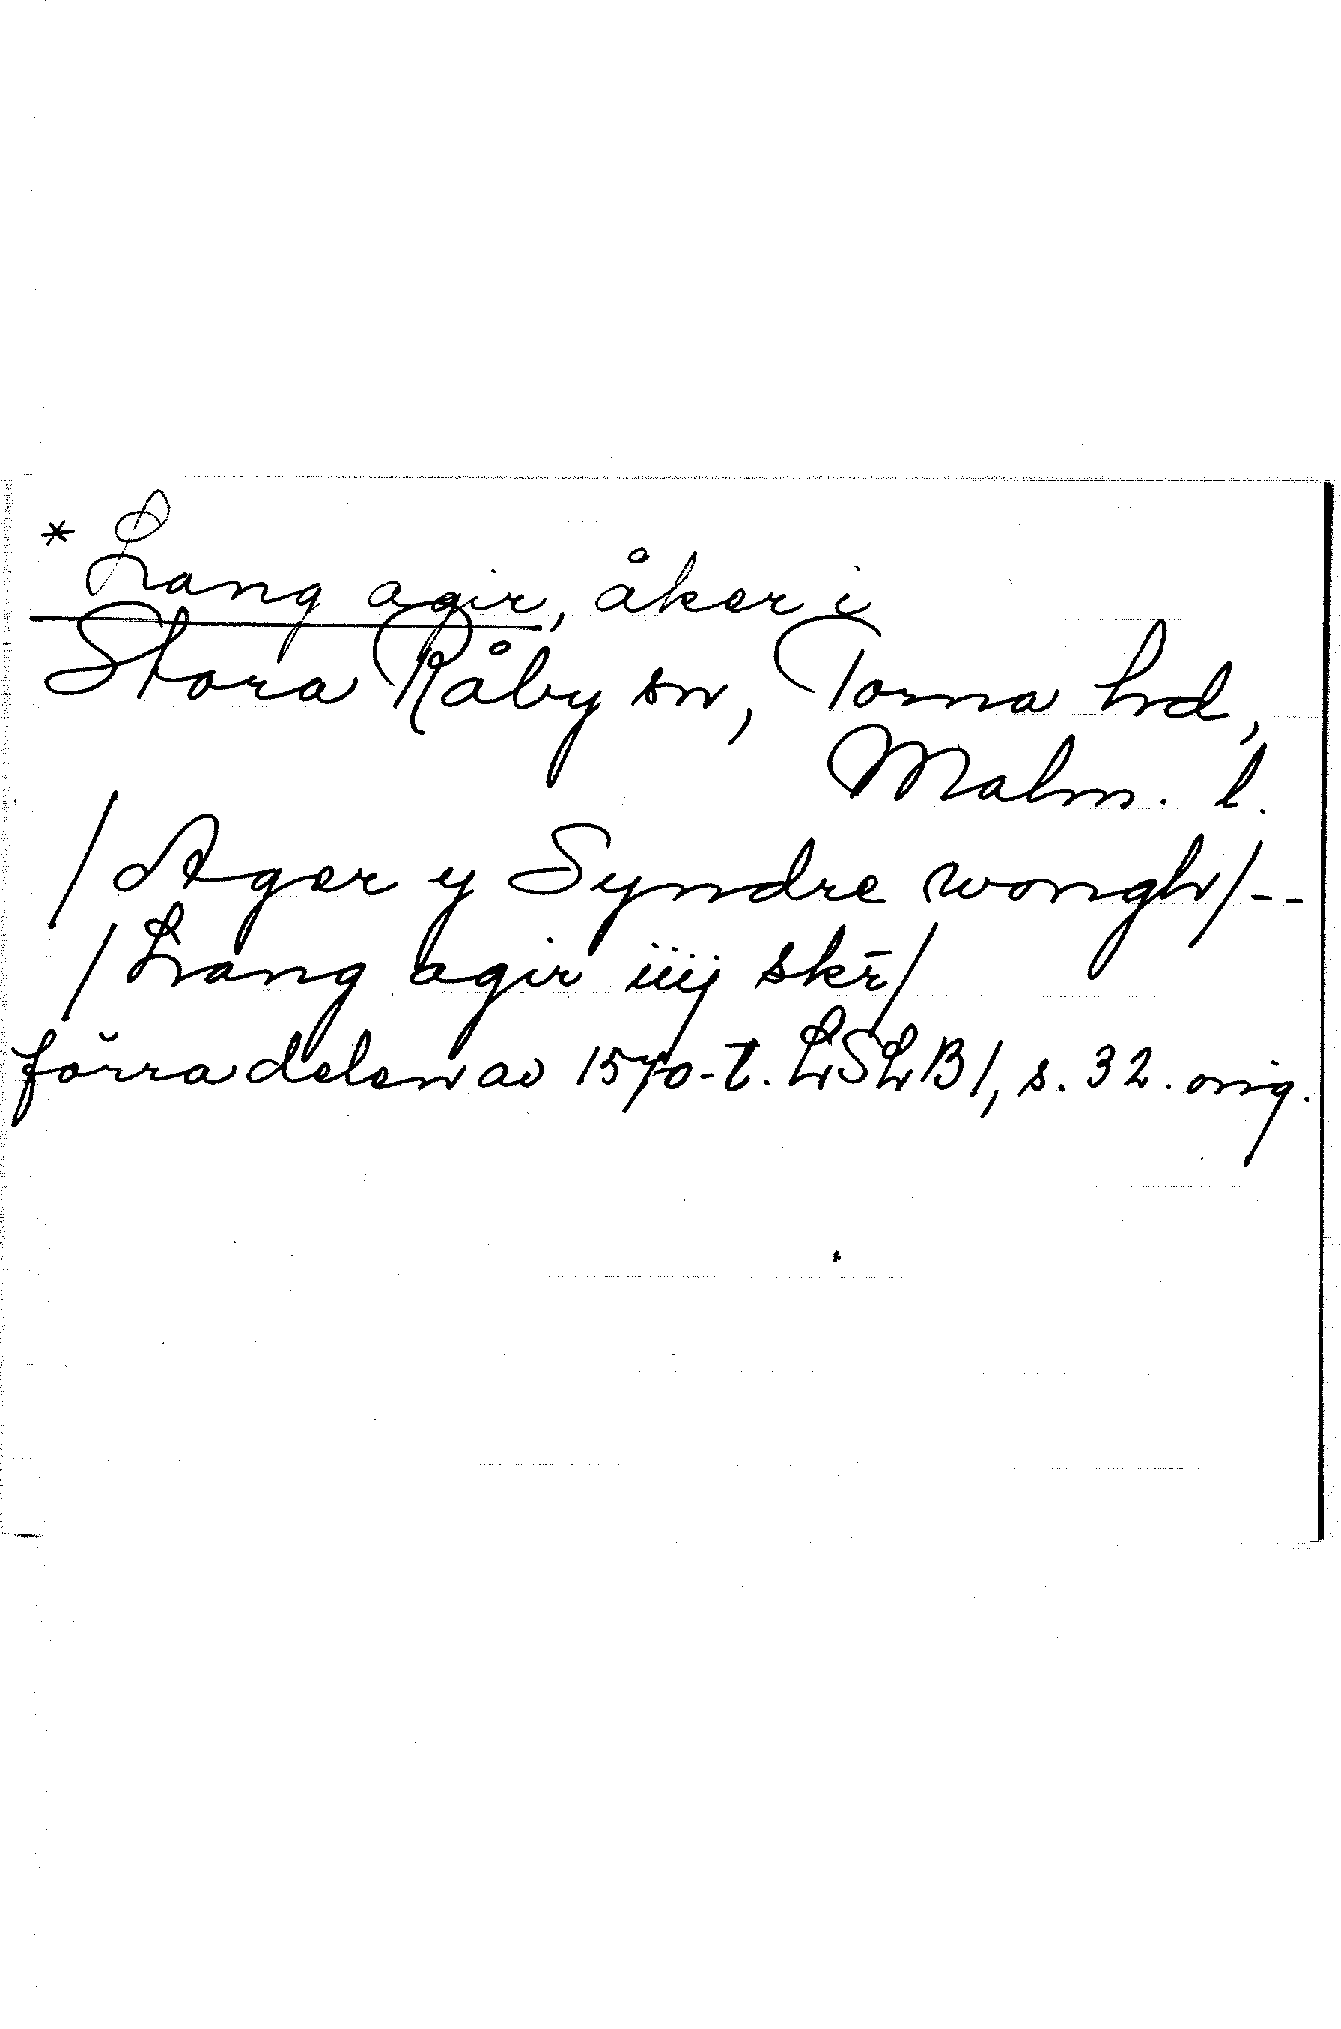 * Lang agir, åker i
Stora Råby sn, Torna hd,
Malm. l.
/Ager y Syndre wongh/--
/Lang agir iiij skr̄/
förra delen av 1570-t. LSLB1, s. 32. orig.